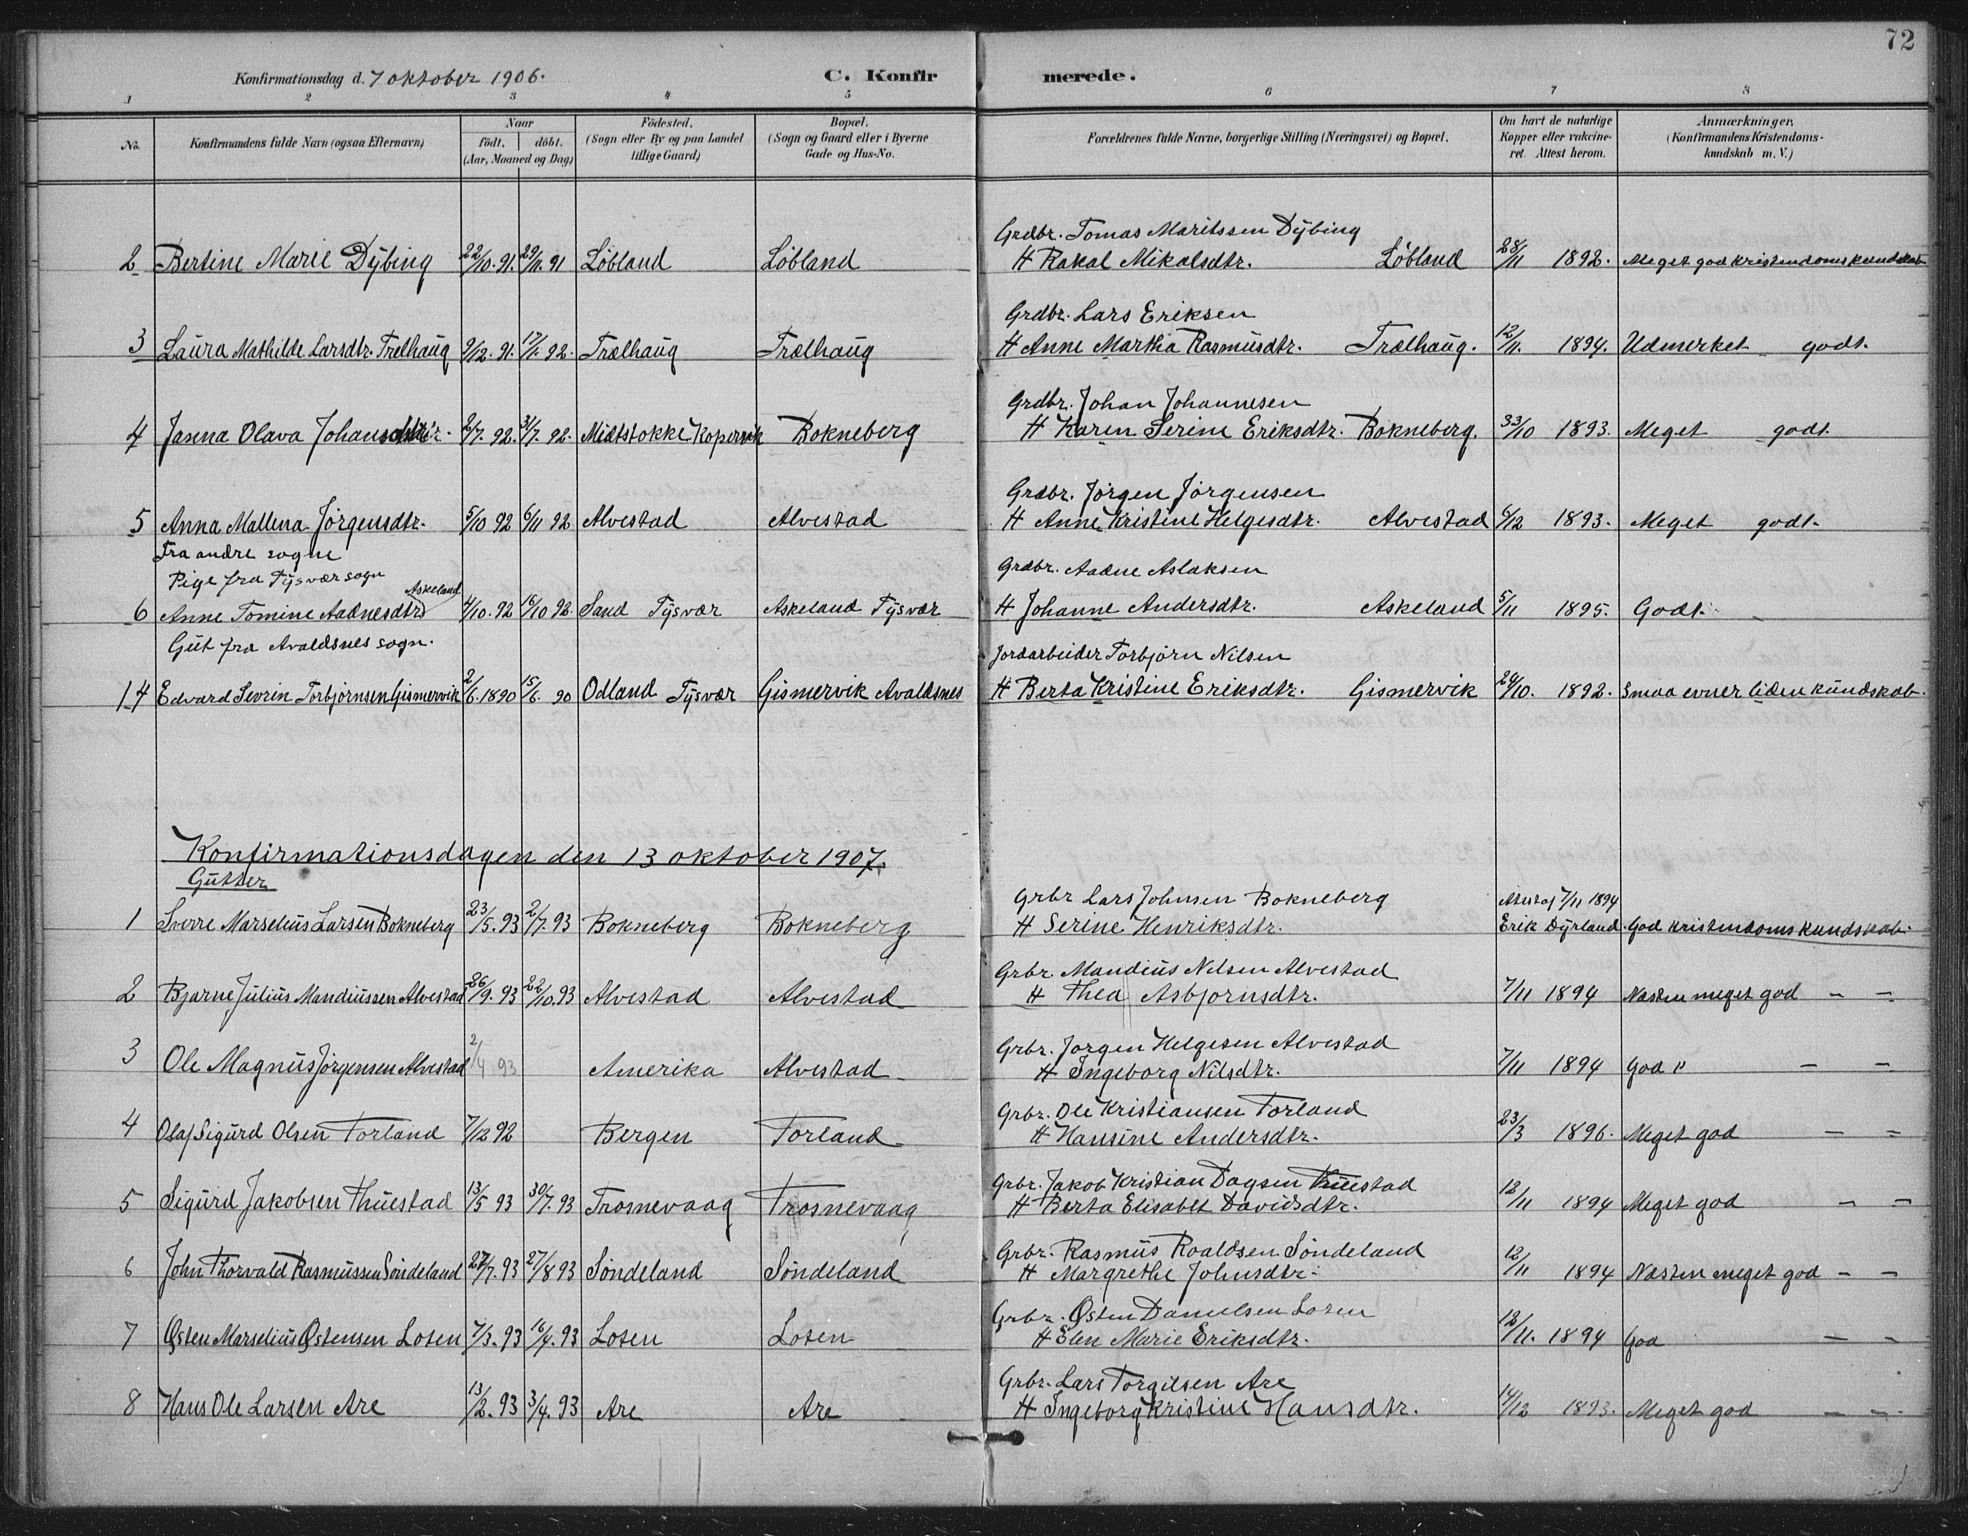 72
Konfirmationsdag d. 7 oktober 1906.
C. Konfirmerede.
1 2 3 4 5 6 7 8
No.
Konfirmandens fulde Navn (ogsaa Efternavn)
Naar
født. døbt.
(Aar, Maaned og Dag)
Fødested.
(Sogn eller By og paa Landet
tillige Gaard)
Bopæl.
(Sogn og Gaard eller i Byerne
Gade og Hus-No.
Forældrenes fulde Navne, borgerlige Stilling (Næringsvei) og Bopæl.
Om havt de naturlige
Kopper eller vakcine-
ret. Attest herom.
Anmærkninger.
(Konfirmandens Kristendoms-
kundskab m. V.)
Grdbr. Tomas Maritssen Dÿbing
2 Bertine Marie Dÿbing 22/10. 91. 29/11. 91 Løbland Løbland H Rakal Mikalsdtr. Løbland 28/11 1892. Meget god kristendomskundskab
Grdbr. Lars Eriksen
3 Laura Mathilde Larsdtr. Trælhaug 9/12. 91. 17/1. 92. Trælhaug Trælhaug H Anne Martha Rasmusdtr. Trælhaug. 12/11. 1894. Udmerket godt.
Grdbr. Johan Johannesen
4 Janna Olava Johansdtr. 2/7. 92. 31/7. 92. Midtstokke Kopervik Bokneberg H Karen Serine Eriksdtr. Bokneberg. 33/10 1893. Meget godt.
Grdbr. Jørgen Jørgensen
5 Anna Mallena Jørgensdtr. 5/10 92 6/11 92 Alvestad Alvestad H Anne Kristine Helgesdtr. Alvestad 8/12 1893. Meget godt.
Fra andre sogne
Pige fra Tysvær sogn
Grdbr. Aadne Aslaksen
Askeland
6 Anne Tomine Aadnesdtr 4/10. 92 16/10 92. Sand Tysvær Askeland Tysvær H Johanne Andersdtr. Askeland 5/11 1895. Godt.
Gut fra Avaldsnes sogn.
Jordarbeider Torbjørn Nilsen
14 Edvard Sevrin Torbjørnsen Gismervik 2/6. 1890 15/6. 90 Odland Tysvær Gismervik Avaldsnes H Berta Kristine Eriksdtr. Gismervik 24/10. 1892. Smaa evner liden kundskab.
Konfirmationsdagen den 13 oktober 1907.
Gutter
Grbr Lars Johnsen Bokneberg 7/11 1894
1 Sverre Marselius Larsen Bokneberg 23/5. 93 2/7. 93 Bokneberg Bokneberg H Serine Henriksdtr. Erik Dÿrland. God kristendomskundskab.
Grbr. Mandius Nilsen Alvestad
2 Bjarne Julius Mandiussen Alvestad 26/9. 93 22/10. 93 Alvestad Alvestad H Thea Asbjørnsdtr. 7/11 1894 Næsten meget god — —
Grbr. Jørgen Helgesen Alvestad
3 Ole Magnus Jørgensen Alvestad 2/4 93 Amerika Alvestad H Ingeborg Nilsdtr. 7/11 1894 God " — —
Grbr. Ole Kristiansen Torland
4 Olaf Sigurd Olsen Torland 7/12 92 Bergen Torland H Hansine Andersdtr. 23/3 1896. Meget god — —
Grbr. Jakob Kristian Dagsen Thuestad
5 Sigurd Jakobsen Thuestad 13/5 93 30/7. 93 Trosnevaag Trosnevaag H Berta Elisabet Davidsdtr. 12/11 1894 Meget god — —
Grbr. Rasmus Roaldsen Søndeland
6 John Thorvald Rasmussen Søndeland 27/7. 93 27/8 93 Søndeland Søndeland H Margrethe Johnsdtr. 12/11 1894 Næsten meget god — —
Grbr. Østen Danielsen Losen
7 Østen Marselius Østensen Losen 7/3. 93 16/4. 93 Losen Losen H Elen Marie Eriksdtr. 12/11. 1894 God — —
Grbr. Lars Torgilsen Are
8 Hans Ole Larsen Are 13/2. 93 3/4. 93 Are Are H Ingeborg Kristine Hansdtr. 14/12 1893. Meget god — —